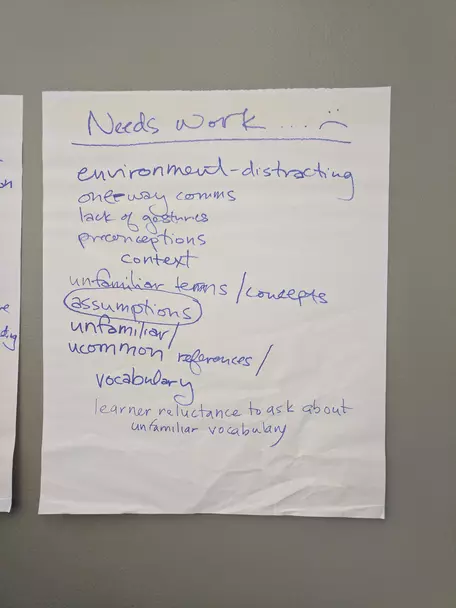 Needs work ... :(
environment-distracting
one-way comms
lack of gestures
preconceptions
context
unfamiliar terms/concepts
assumptions
unfamiliar/
ucommon references/
vocabulary
learner reluctance to ask about
unfamiliar vocabulary
on
e
ding